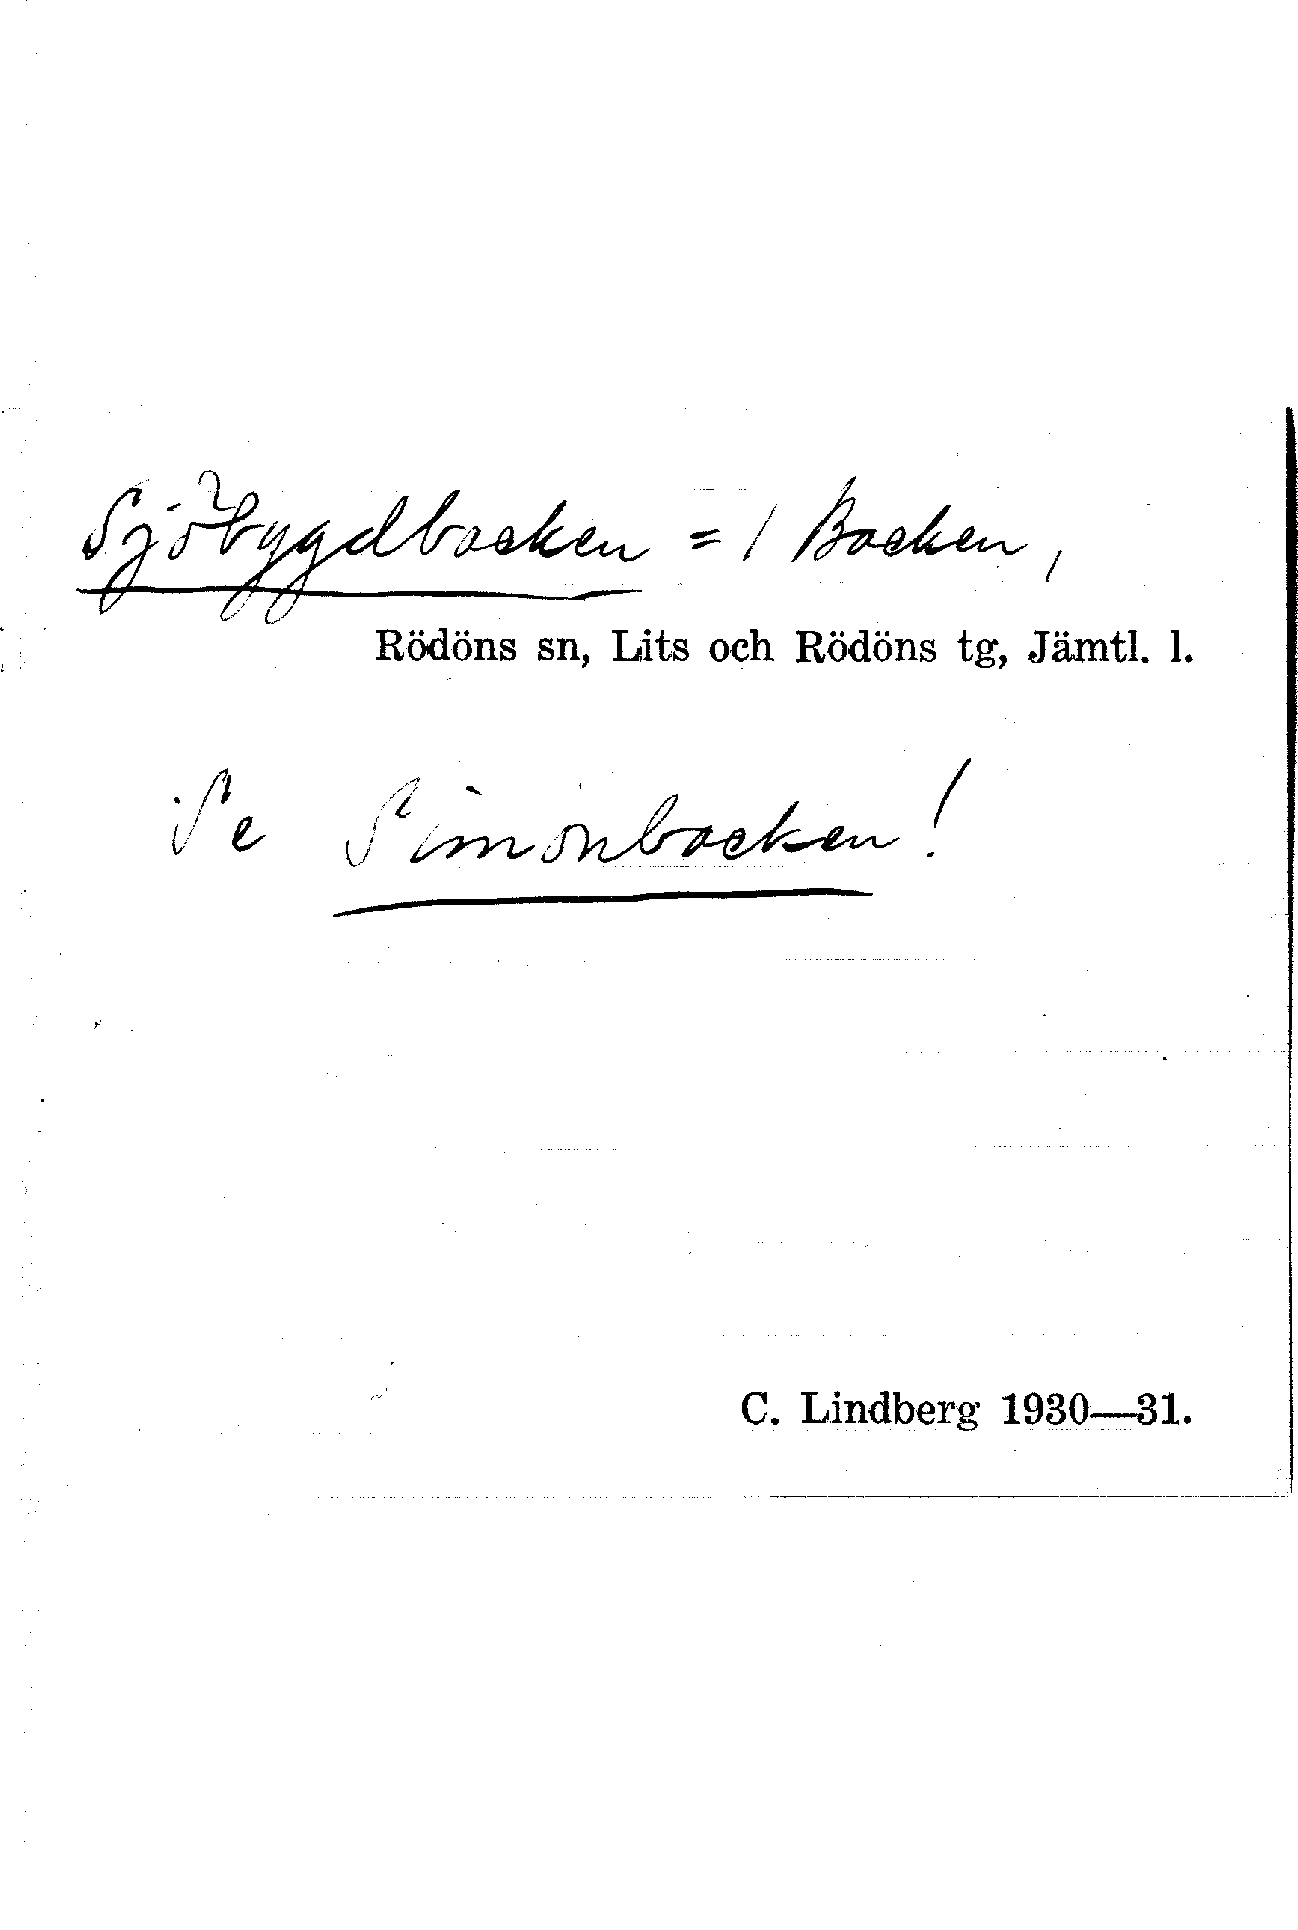 Sjöbygdbacken = / Backen,
Rödöns sn, Lits och Rödöns tg, Jämtl. l.
Se Simonbacken!
C. Lindberg 1930—31.